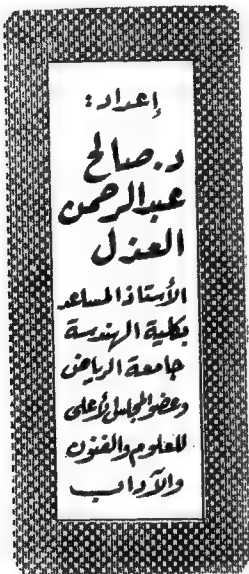 إعداد:
د. صالح
عبدالرحمن
العذل
الأستاذ المساعد
بكلية الهندسة
جامعة الرياض
وعضو المجلس الأعلى
للعلوم والفنون
والآداب